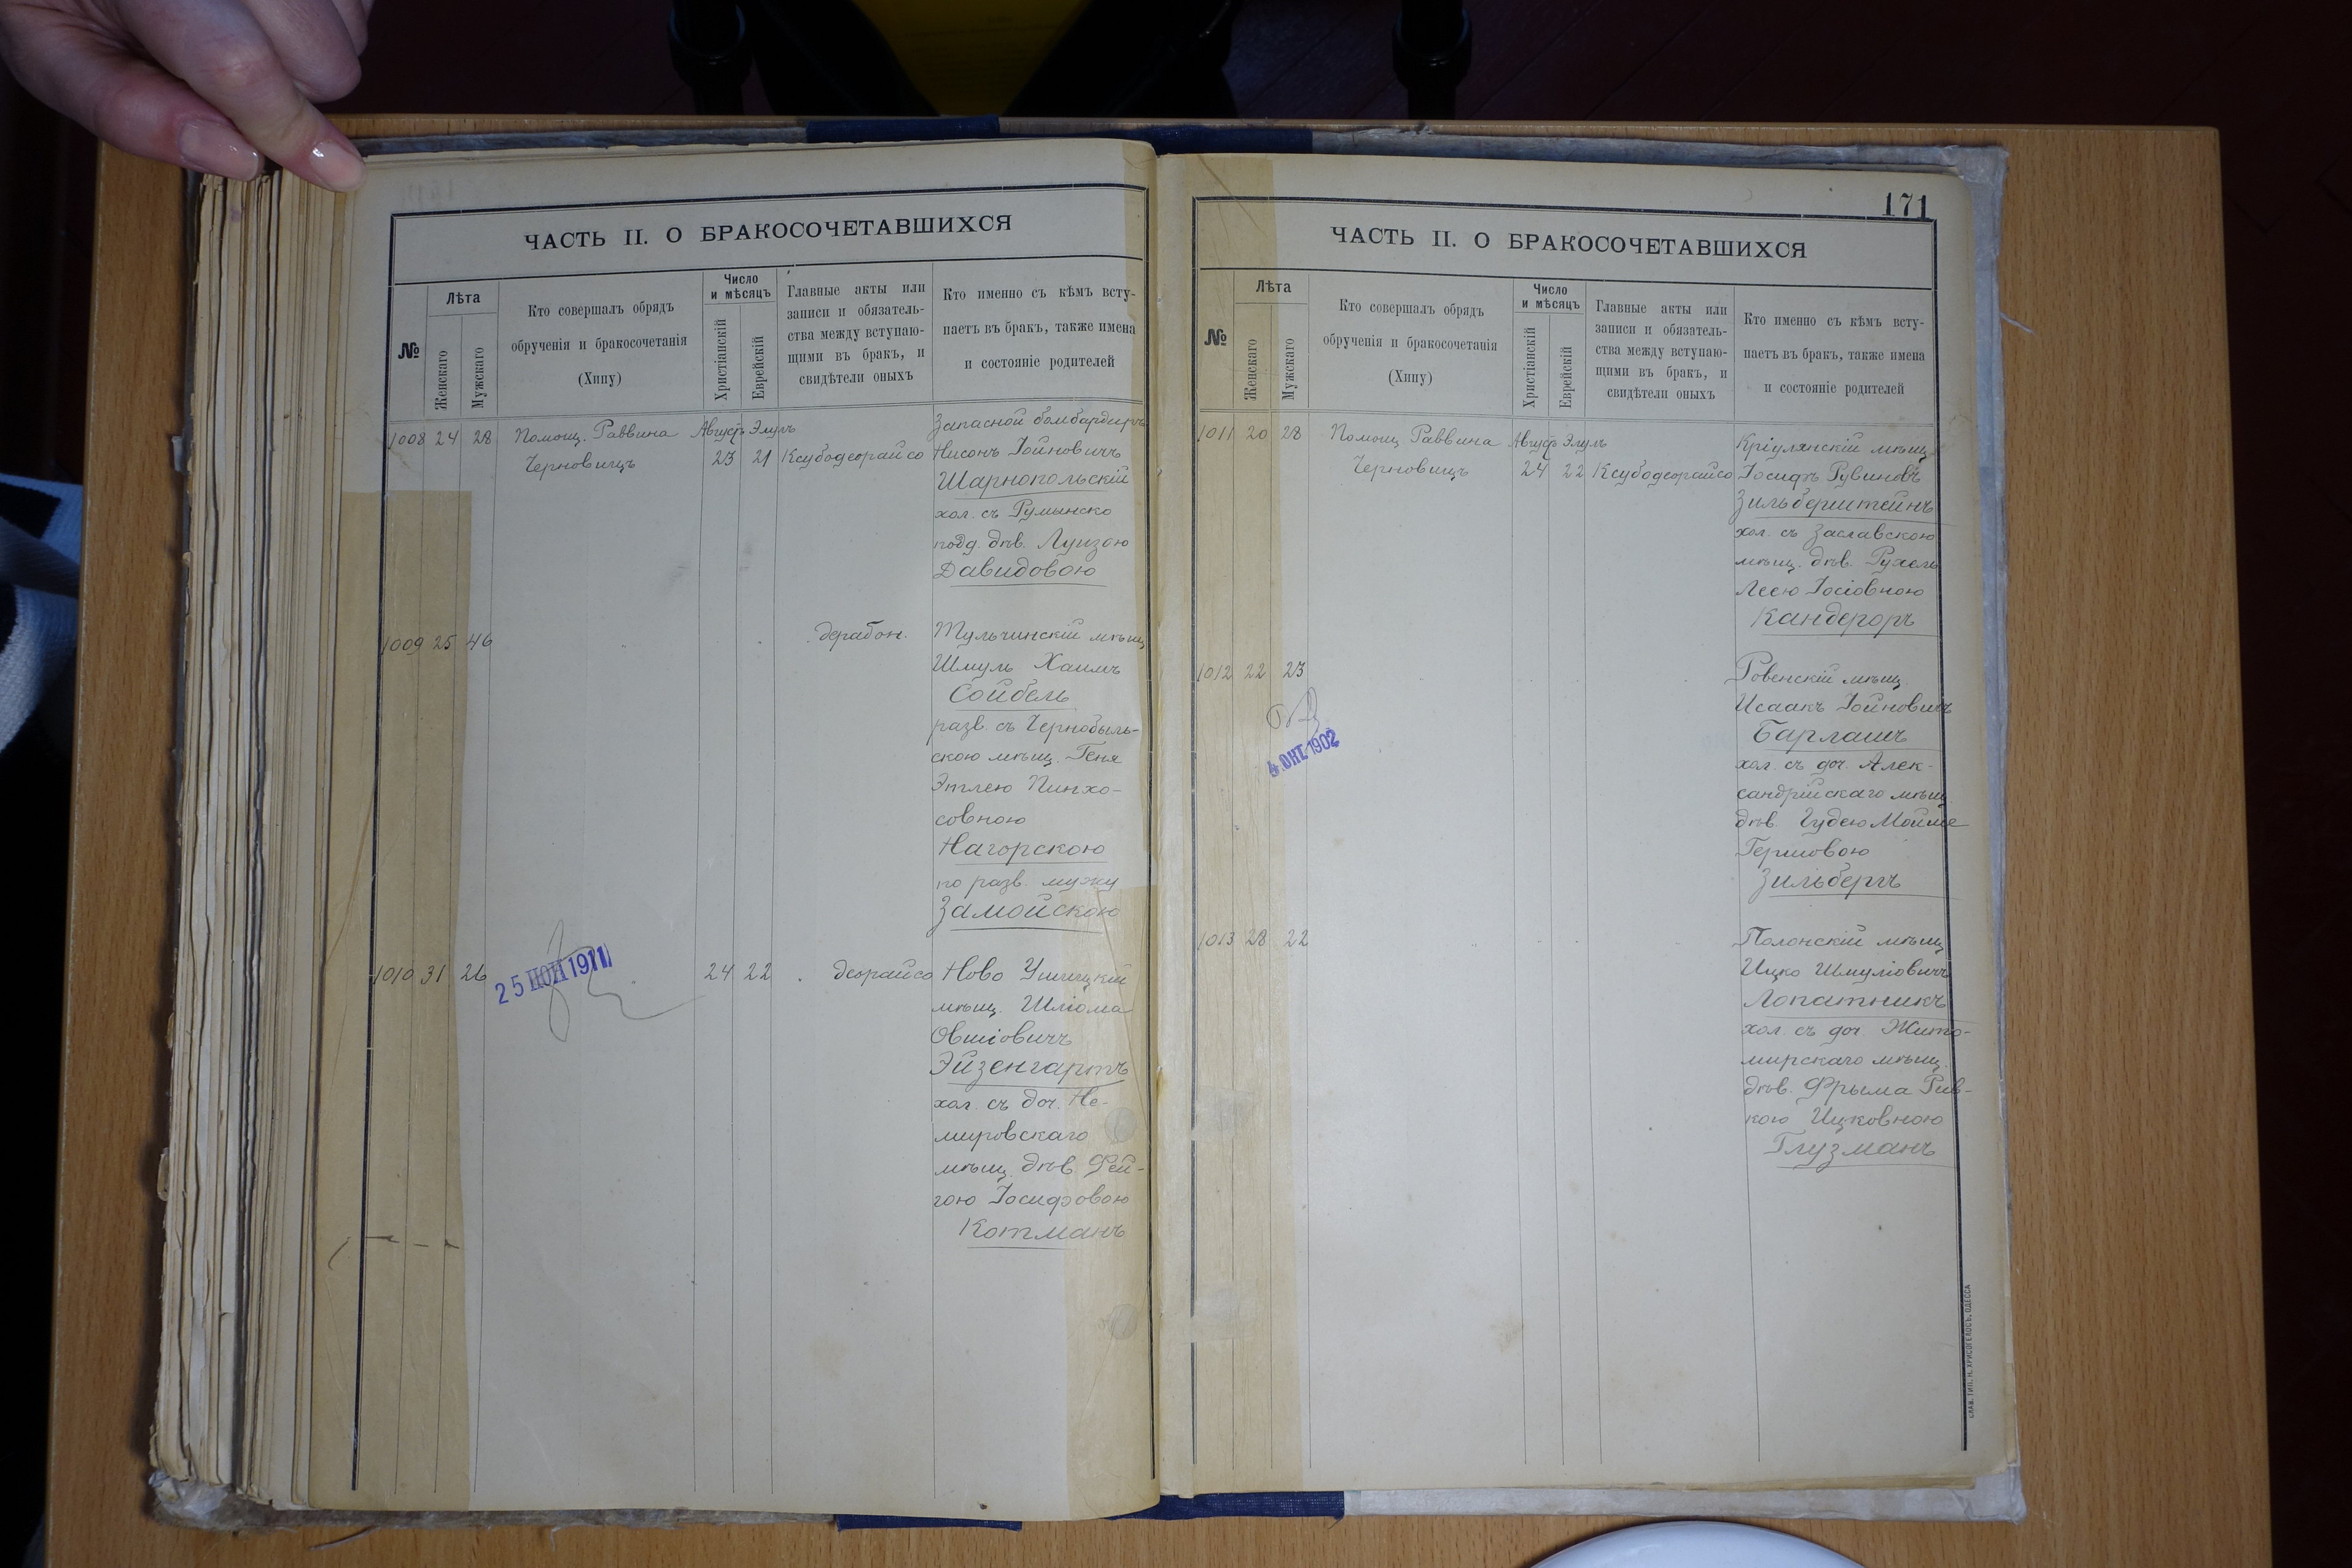 ЧАСТЬ II. О БРАКОСОЧЕТАВШИХСЯ
№
Лѣта
Женскаго
Мужскаго
Кто совершалъ обрядъ
обрученія и бракосочетанія
(Хипу)
Число
и мѣсяцъ
Христіанскій
Еврейскій
Главные акты или
записи и обязатель-
ства между вступаю-
щими въ бракъ, и
свидѣтели оныхъ
Кто именно съ кѣмъ всту-
паетъ въ бракъ, также имена
и состояніе родителей
1008 24 28 Помощ. Раввина Августъ Элулъ Запасной бомбардиръ
Черновицъ 23 21 Ксубодеорайсо Нисонъ Іойновичъ
Шарнопольскій
хол. съ Румынско
подд. дѣв. Луизою
Давидовою
1009 25 46 дерабон. Тульчинскій мѣщ
Шмуль Хаимъ
Сойбель
разв. съ Чернобыль-
скою мѣщ. Геня
Этлею Пинхо-
совною
Нагорскою
по разв. мужу
Замойскою
1010 31 26 25 НОЯ 1911 24 22 деорайсо Ново Ушицкій
мѣщ. Шліома
Овшіовичъ
Эйзенгартъ
хол. съ доч. Не-
мировскаго
мѣщ. дѣв. Фей-
гою Іосифовою
Котманъ
171
ЧАСТЬ II. О БРАКОСОЧЕТАВШИХСЯ
№
Лѣта
Женскаго
Мужскаго
Кто совершалъ обрядъ
обрученія и бракосочетанія
(Хипу)
Число
и мѣсяцъ
Христіанскій
Еврейскій
Главные акты или
записи и обязатель-
ства между вступаю-
щими въ бракъ, и
свидѣтели оныхъ
Кто именно съ кѣмъ всту-
паетъ въ бракъ, также имена
и состояніе родителей
1011 20 28 Помощ Раввина Августъ Элулъ Кріулянскій мѣщ
Черновицъ 24 22 Ксубодеорайсо Іосифъ Рувиновъ
Зильберштейнъ
хол. съ Заславскою
мѣщ. дѣв. Рухель
Леею Іосіовною
Кандероръ
1012 22 23 Ровенскій мѣщ
Исаакъ Іойновичъ
Барлашъ
4 ОКТ 1902
хол. съ доч. Алек-
сандрійскаго мѣщ
дѣв. Чудею Мойше
Гершовою
Зильберъ
1013 28 22 Полонскій мѣщ
Ицко Шмуліовичъ
Лопатникъ
хол. съ доч. Жито-
мирскаго мѣщ
дѣв. Фрыма Рив-
кою Ицковною
Глузманъ
СЛАВ. ТИП. Н. ХРИСОГЕЛОСЪ, ОДЕССА